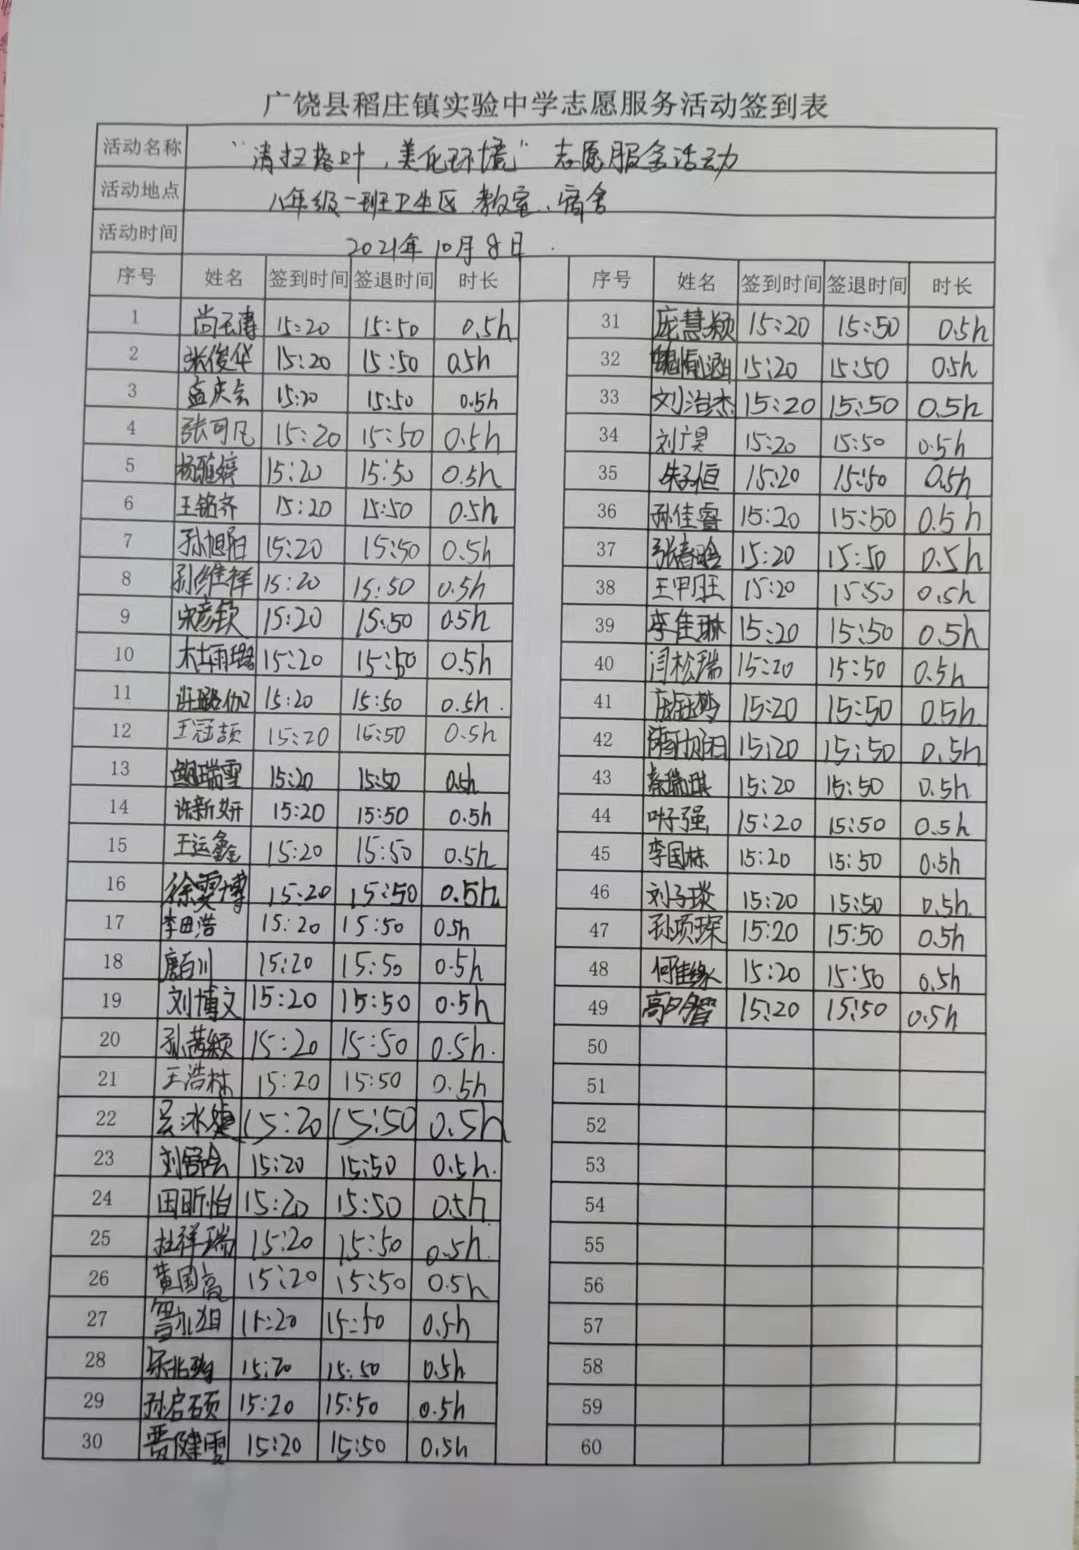 广饶县稻庄镇实验中学志愿服务活动签到表
活动名称 “清扫落叶，美化环境”志愿服务活动
活动地点 八年级一班卫生区、教室、宿舍
活动时间 2021年10月8日
序号 姓名 签到时间 签退时间 时长 序号 姓名 签到时间 签退时间 时长
1 15:20 15:50 0.5h 31 庞慧颖 15:20 15:50 0.5h
2 张俊华 15:20 15:50 0.5h 32 15:20 15:50 0.5h
3 孟庆会 15:20 15:50 0.5h 33 刘浩杰 15:20 15:50 0.5h
4 张可凡 15:20 15:50 0.5h 34 刘广昊 15:20 15:50 0.5h
5 杨雅婷 15:20 15:50 0.5h 35 朱子恒 15:20 15:50 0.5h
6 王铭齐 15:20 15:50 0.5h 36 孙佳睿 15:20 15:50 0.5h
7 孙旭阳 15:20 15:50 0.5h 37 张春晗 15:20 15:50 0.5h
8 孙维祥 15:20 15:50 0.5h 38 王甲旺 15:20 15:50 0.5h
9 宋彦钦 15:20 15:50 0.5h 39 李佳琳 15:20 15:50 0.5h
10 15:20 15:50 0.5h 40 闫松瑞 15:20 15:50 0.5h
11 15:20 15:50 0.5h. 41 15:20 15:50 0.5h
12 王冠颉 15:20 15:50 0.5h 42 15:20 15:50 0.5h
13 15:20 15:50 0.5h 43 秦瑞琪 15:20 15:50 0.5h
14 许新妍 15:20 15:50 0.5h 44 叶子强 15:20 15:50 0.5h
15 王运鑫 15:20 15:50 0.5h 45 李国栋 15:20 15:50 0.5h
16 徐雯博 15:20 15:50 0.5h 46 刘子琰 15:20 15:50 0.5h
17 李田浩 15:20 15:50 0.5h 47 孙顼琛 15:20 15:50 0.5h
18 唐百川 15:20 15:50 0.5h 48 何佳缘 15:20 15:50 0.5h
19 刘博文 15:20 15:50 0.5h 49 15:20 15:50 0.5h
20 孙茜颖 15:20 15:50 0.5h. 50
21 王浩林 15:20 15:50 0.5h 51
22 15:20 15:50 0.5h 52
23 15:20 15:50 0.5h. 53
24 田昕怡 15:20 15:50 0.5h 54
25 杜祥瑞 15:20 15:50 0.5h. 55
26 黄国高 15:20 15:50 0.5h 56
27 15:20 15:50 0.5h 57
28 15:20 15:50 0.5h 58
29 孙启硕 15:20 15:50 0.5h 59
30 贾健雯 15:20 15:50 0.5h 60